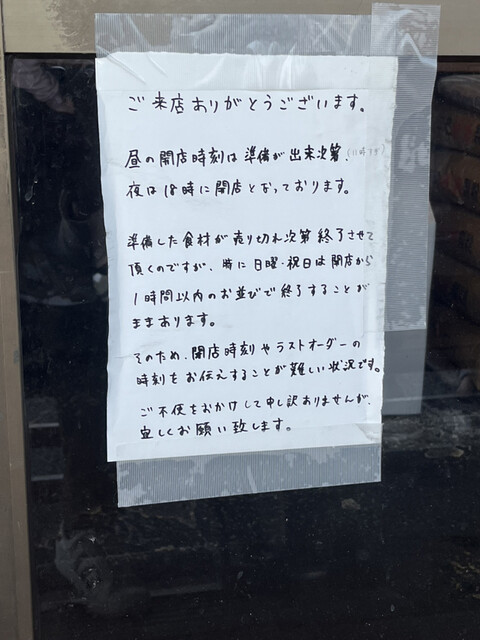 ご来店ありがとうございます。
昼の開店時刻は準備が出来次第、
夜は18時に開店となっております。
準備した食材が売り切れ次第終了させて
頂くのですが、特に日曜・祝日は開店から
1時間以内のお並びで終了することが
ままあります。
そのため、閉店時刻やラストオーダーの
時刻をお伝えすることが難しい状況です。
ご不便をおかけして申し訳ありませんが、
宜しくお願い致します。